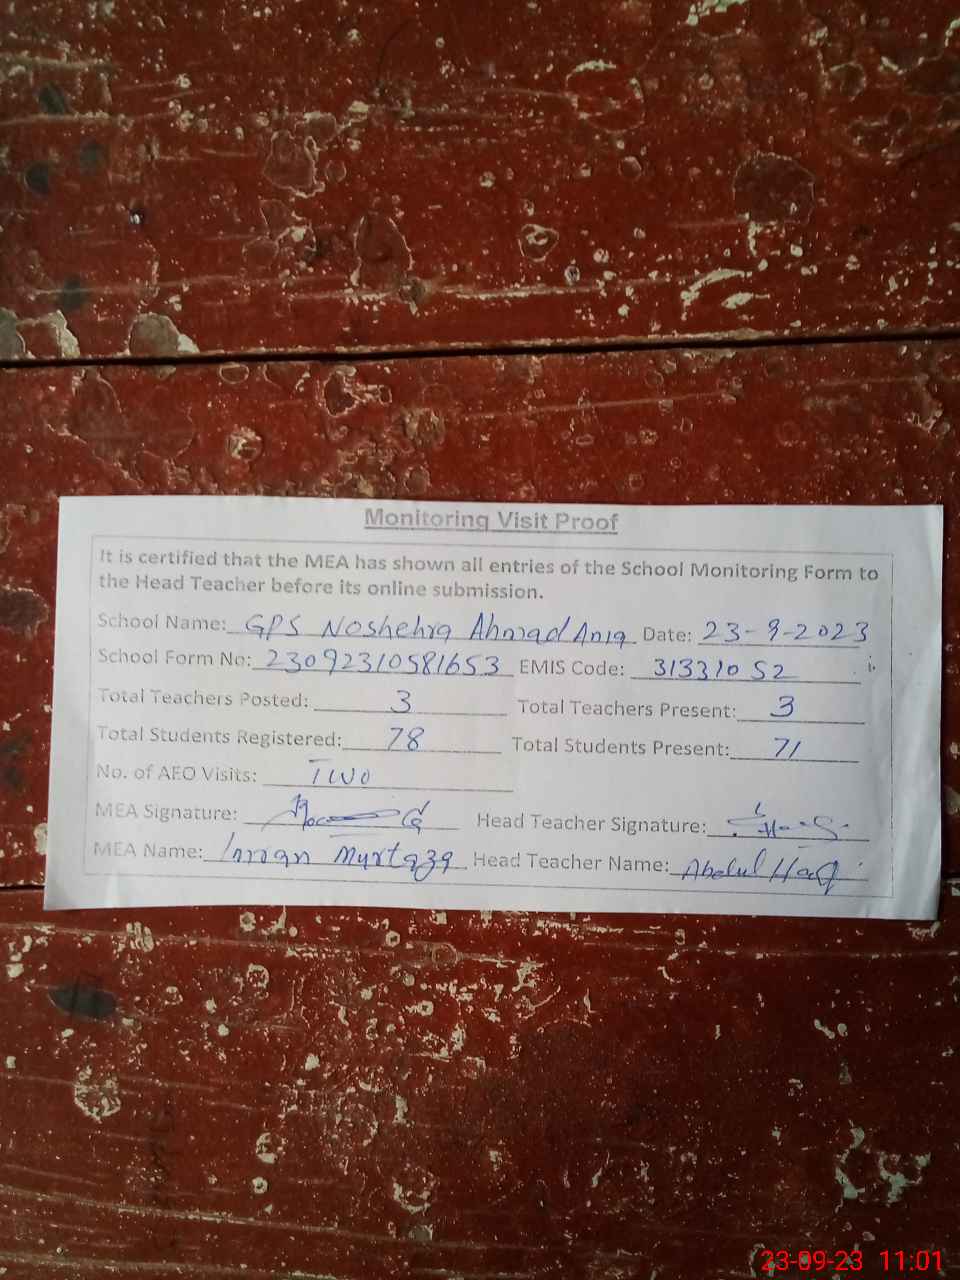 Monitoring Visit Proof
It is certified that the MEA has shown all entries of the School Monitoring Form to
the Head Teacher before its online submission.
School Name: GPS Noshehra Ahmad Aniq Date: 23-9-2023
School Form No: 23092310581653 EMIS Code: 31331052
Total Teachers Posted: 3 Total Teachers Present: 3
Total Students Registered: 78 Total Students Present: 71
No. of AEO Visits: Two
MEA Signature: Head Teacher Signature:
MEA Name: Imran Murtaza Head Teacher Name: Abdul Haq
23-09-23 11:01